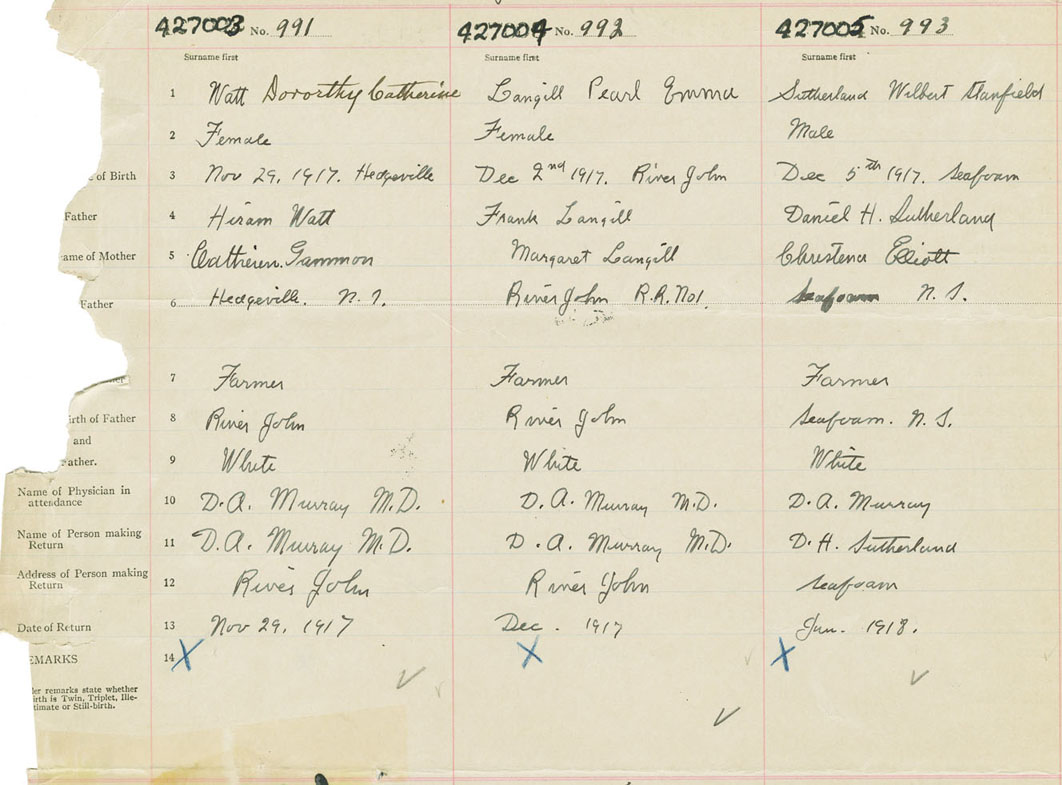 427003 No. 991 427004 No. 992 427005 No. 993
Surname first Surname first Surname first
1 Watt Dororthy Catherine Langill Pearl Emma Sutherland Wilbert Stanfield
2 Female Female Male
of Birth 3 Nov 29, 1917. Hedgeville Dec 2nd 1917. River John Dec 5th 1917. Seafoam
Father 4 Hiram Watt Frank Langill Daniel H. Sutherland
ame of Mother 5 Cathieren Gammon Margaret Langill Christena Elliott
Father 6 Hedgeville. N.S. River John R.R. No 1. Seafoam N.S.
7 Farmer Farmer Farmer
irth of Father 8 River John River John Seafoam. N.S.
and
ather. 9 White White White
Name of Physician in
attendance 10 D.A. Murray M.D. D.A. Murray M.D. D.A. Murray
Name of Person making
Return 11 D.A. Murray M.D. D.A. Murray M.D. D.H. Sutherland
Address of Person making
Return 12 River John River John Seafoam
Date of Return 13 Nov 29, 1917 Dec. 1917 Jan. 1918.
EMARKS 14 X X X
der remarks state whether
irth is Twin, Triplet, Ille-
timate or Still-birth.